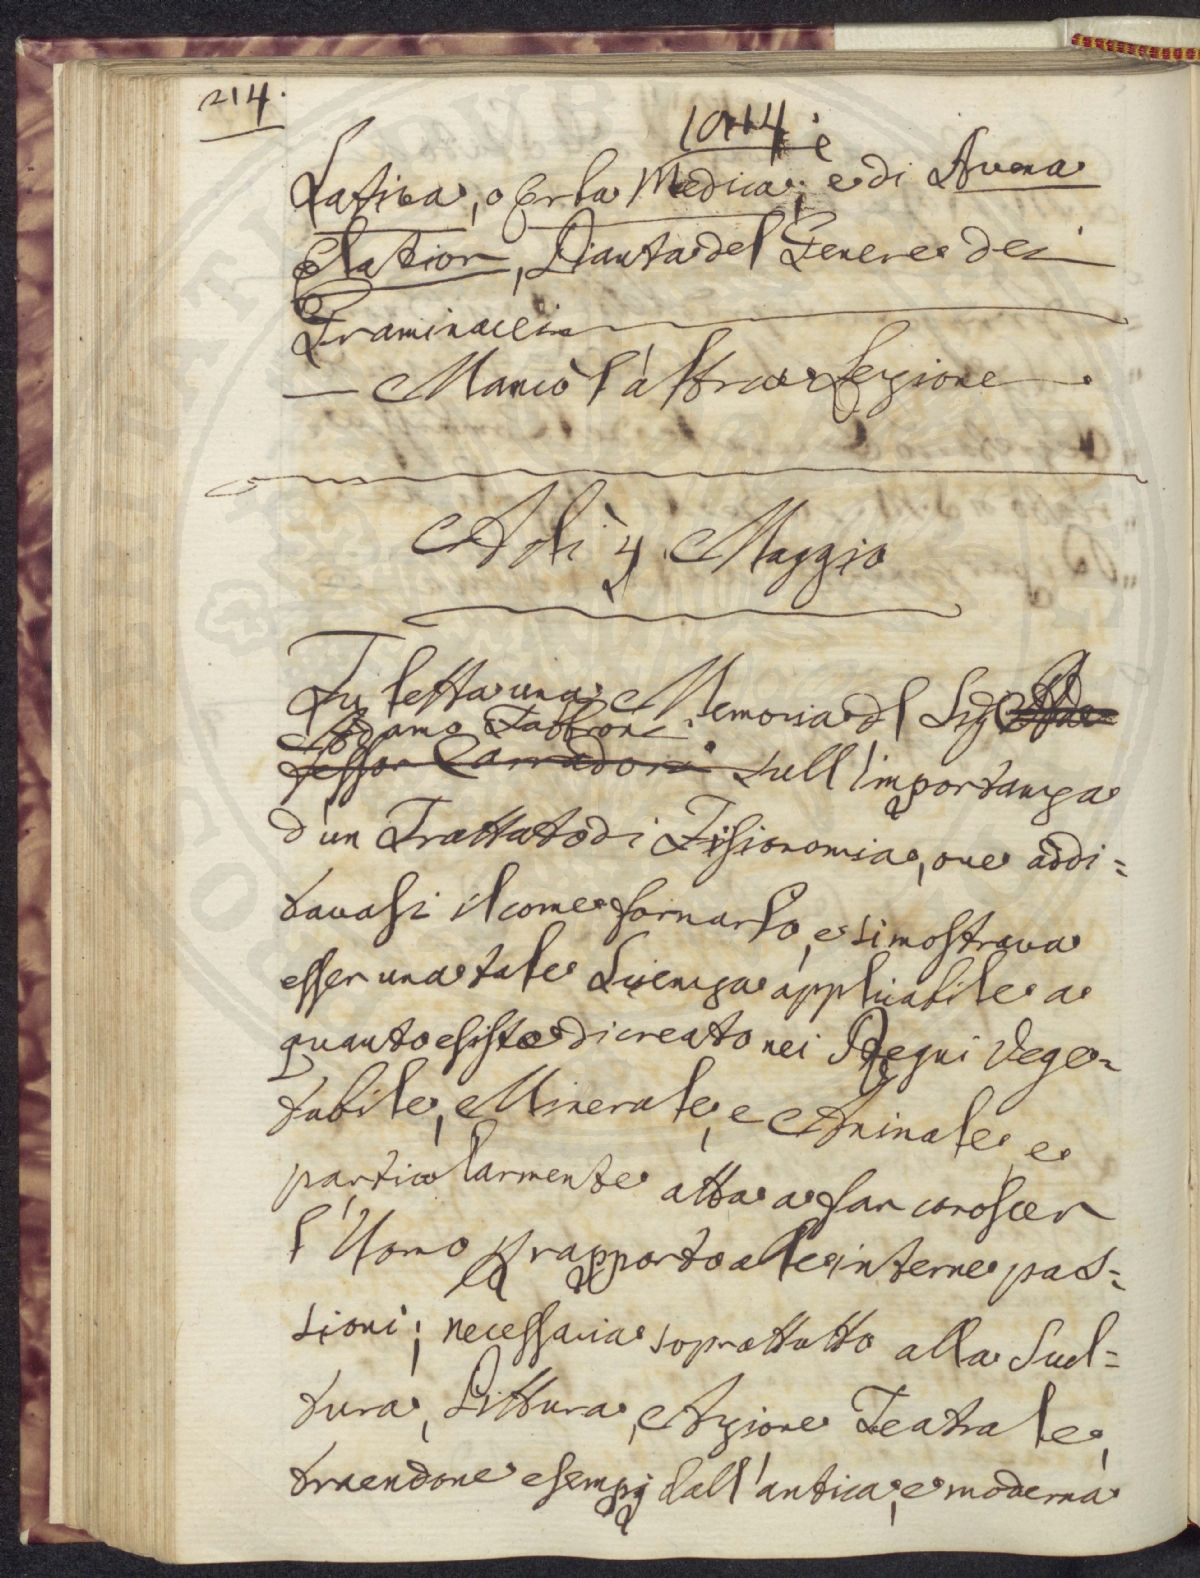 214.
1044
è
Sativa, o Erba Medica; e di Avena
Elatior, Pianta del Genere dei
Graminacei
— Mancò l'altra Lezione —.
A dì 4. Maggio
Fu letta una Memoria del Sig.
Adamo Fabbroni
fessor Carradori sull'importanza
d'un Trattato di Fisionomia, ove addi=
tavasi il come formarlo, e si mostrava
esser una tale Scienza applicabile a
quanto esiste di creato nei Regni Vege=
tabile, Minerale, e Animale, e
particolarmente atta a far conoscer
l'Uomo p rapporto alle interne pas=
sioni; necessaria soprattutto alla Scul=
tura, Pittura, e Azione Teatrale,
traendone esempj dall'antica, e moderna